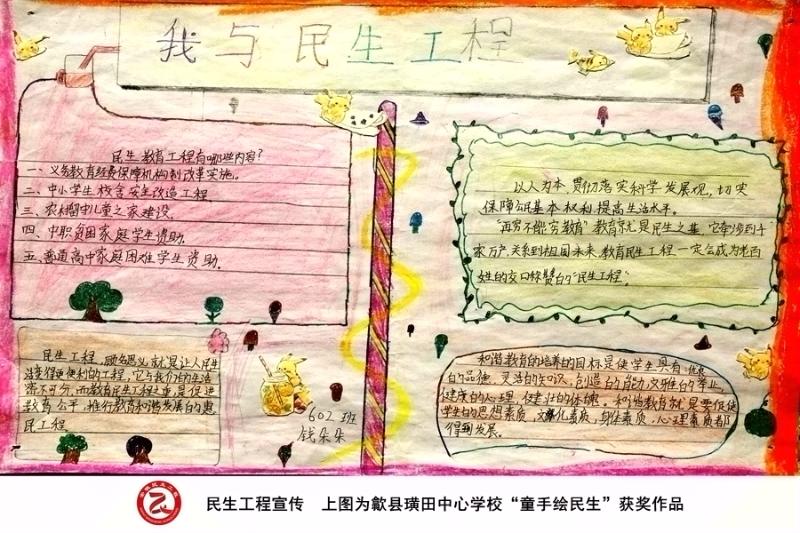 我与民生工程
民生教育工程有哪些内容?
一、义务教育经费保障机构制改革实施。
二、中小学生校舍安全改造工程
三、农村留守儿童之家建设。
四、中职贫困家庭学生资助。
五、普通高中家庭困难学生资助。
民生工程,顾名思义,就是让人民生
活变得更便利的工程,它与我们的生活
密不可分,而教育民生工程注重促进
教育公平,推行教育和谐发展的惠
民工程。
602班
钱朵朵
以人为本,贯彻落实科学发展观,切实
保障公民基本权利,提高生活水平。
"再穷不能穷教育"教育就是民生之基,它牵涉到千
家万户,关系到祖国未来,教育民生工程一定会成为老百
姓的交口称赞的"民生工程"。
和谐教育的培养的目标是使学生具有:优良
的品德、灵活的知识、创造的能力、文雅的举止、
健康的心理、健壮的体魄。和谐教育就是要促使
学生的思想素质、文化素质、身体素质、心理素质都
得到发展。
民生工程宣传 上图为歙县璜田中心学校“童手绘民生”获奖作品